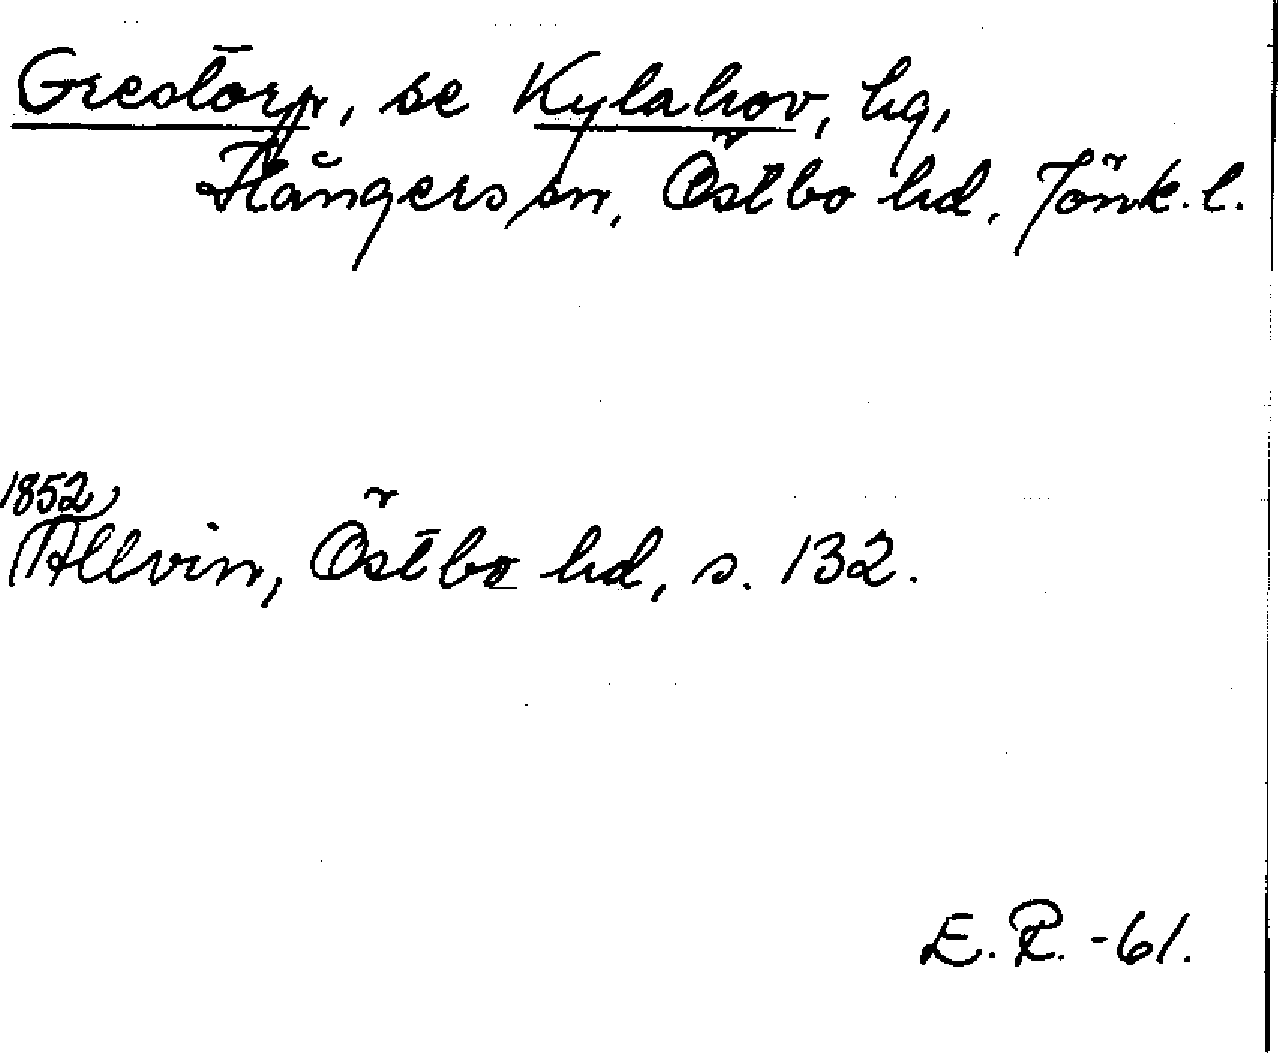 Grestorp, se Kylahov, hg,
Hångers sn, Östbo hd, Jönk. l.
1852
Allvin, Östbo hd, s. 132.
E. R. -61.